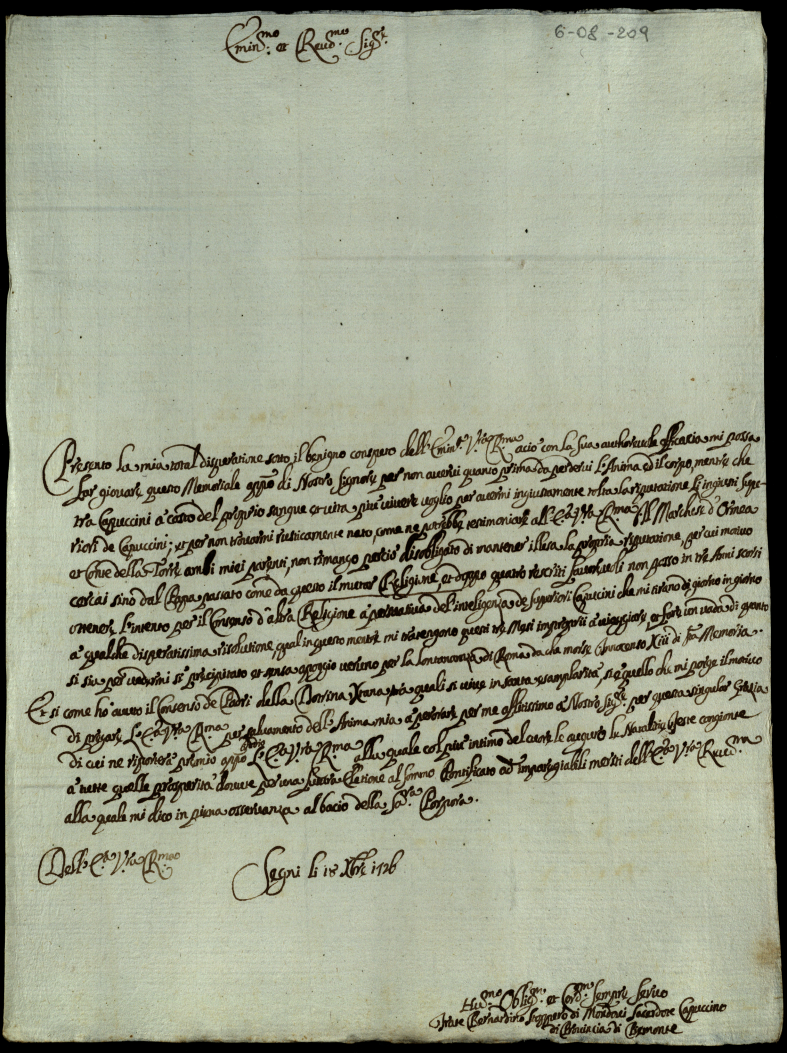 6-08-209
Emin.mo et Reud.mo Sig.r
Presento la mia total disperatione sotto il benigno conspeto dell'Emin.a V.ra R.ma acio con la sua authoreuole efficacia mi possa
far giouare questo Memoriale di Nostro Signore per non auersi quanto prima da perdersi l'Anima ed il corpo, mentre che
tra Capuccini a costo del proprio sangue et uita piu uiuere uoglio per auermi ingiustamente tolta la riputatione gl'ingiusti Supe-
riori de Capuccini; et per non trouarmi rusticamente nato, come ne potrebbe testimoniare all'E.za V.ra R.ma il Marchese d'Ormea
et Conte della Torre ambi miei parenti, non rimango percio disobligato di mantener illesa la propria riputatione, per cui motiuo
cercai sino dal Pappa passato come da questo il mutar Religione, et doppo quatro rescriti fauoreuoli non posso in tre Anni scorsi
ottenere l'intento per il Consenso d'altra Religione a persuasiua del'inteligenza de Superiori Capucini che mi tirano di giorno in giorno
a qualche disperatissima risolutione, qual in questo mentre mi tratengono questi tre Mesi a uiaggiare, et fare con uada di quanto
si sia per uedermi si precipitato et senza apoggio ueruno per la lontananza di Roma da che morse Innocenzo Xiii di S.ta Memoria.
Et si come ho auuto il Consenso de Padri della Dotrina Xtiana, tra quali si uiue in santa esemplarita si e quello che mi porge il motiuo
di pregare l'E.za V.ra R.ma per saluamento dell'Anima mia a perorare per me aflitissimo a Nostro Sig.re per questa singular Grazia
di cui ne riportera premio apresso Iddio l'E.za V.ra R.ma alla quale col piu intimo del cuore le auguro le Natalizie feste congionte
a tutte quelle prosperita douute per una futura Elezione al sommo Pontificato ad impareggiabili meriti dell'E.za V.ra Reud.ma
alla quale mi dico in piena osseruanza al bacio della Sa.ra Porpora.
Dell'E.za V.ra R.ma
Segni li 18 Xbre 1726
Hu.mo Oblig.mo et Cord.mo sempre Seruo
Frate Bernardino di Mondoui Sacerdote Capuccino
di Prouincia di Piemonte